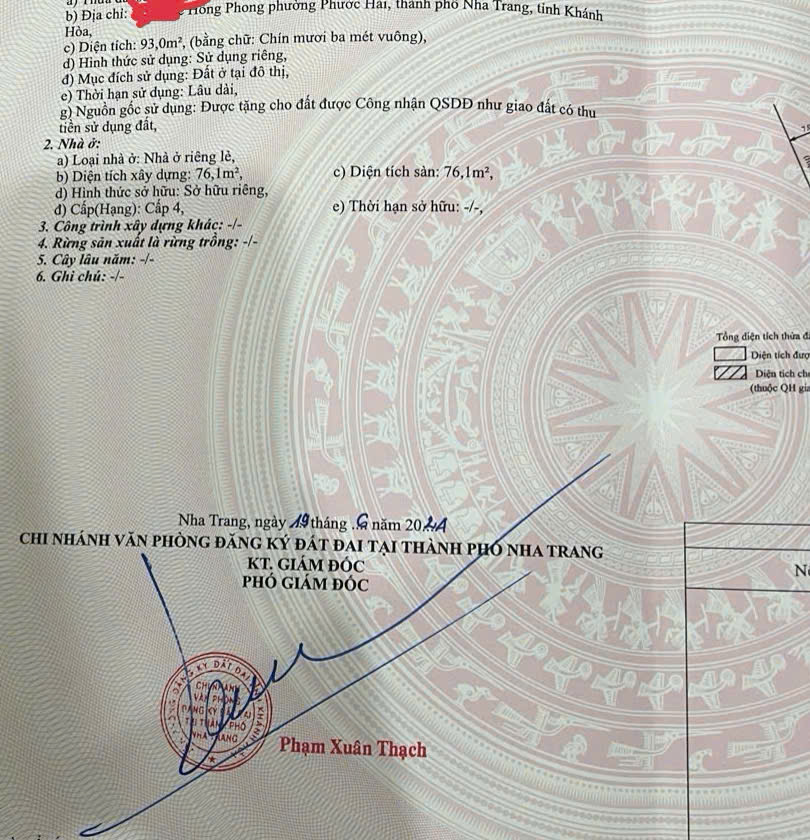 b) Địa chỉ: Hồng Phong phường Phước Hải, thành phố Nha Trang, tỉnh Khánh
Hòa,
c) Diện tích: 93,0m², (bằng chữ: Chín mươi ba mét vuông),
d) Hình thức sử dụng: Sử dụng riêng,
đ) Mục đích sử dụng: Đất ở tại đô thị,
e) Thời hạn sử dụng: Lâu dài,
g) Nguồn gốc sử dụng: Được tặng cho đất được Công nhận QSDĐ như giao đất có thu
tiền sử dụng đất,
2. Nhà ở:
a) Loại nhà ở: Nhà ở riêng lẻ,
b) Diện tích xây dựng: 76,1m²,
c) Diện tích sàn: 76,1m²,
d) Hình thức sở hữu: Sở hữu riêng,
đ) Cấp(Hạng): Cấp 4,
e) Thời hạn sở hữu: -/-,
3. Công trình xây dựng khác: -/-
4. Rừng sản xuất là rừng trồng: -/-
5. Cây lâu năm: -/-
6. Ghi chú: -/-
Tổng diện tích thửa
Diện tích
Diện tích
(thuộc QH
Nha Trang, ngày 19 tháng năm 2021
CHI NHÁNH VĂN PHÒNG ĐĂNG KÝ ĐẤT ĐAI TẠI THÀNH PHỐ NHA TRANG
KT. GIÁM ĐỐC
PHÓ GIÁM ĐỐC
CHI NHÁNH
VĂN PHÒNG
ĐĂNG KÝ
THÀNH PHỐ
NHA TRANG
Phạm Xuân Thạch